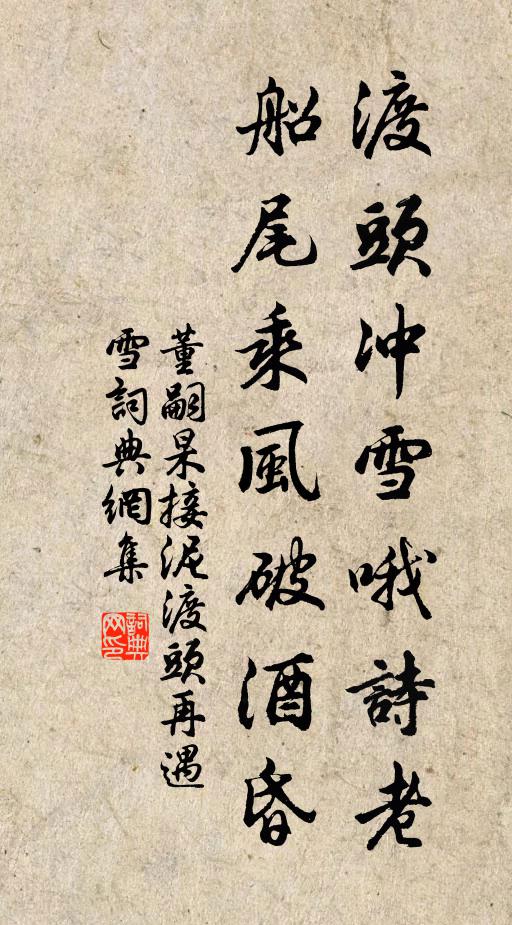 渡頭冲雪哦詩老
船尾乘風破酒昏
董嗣杲接泥渡頭再遇
雪詞典網集
詞典
网印